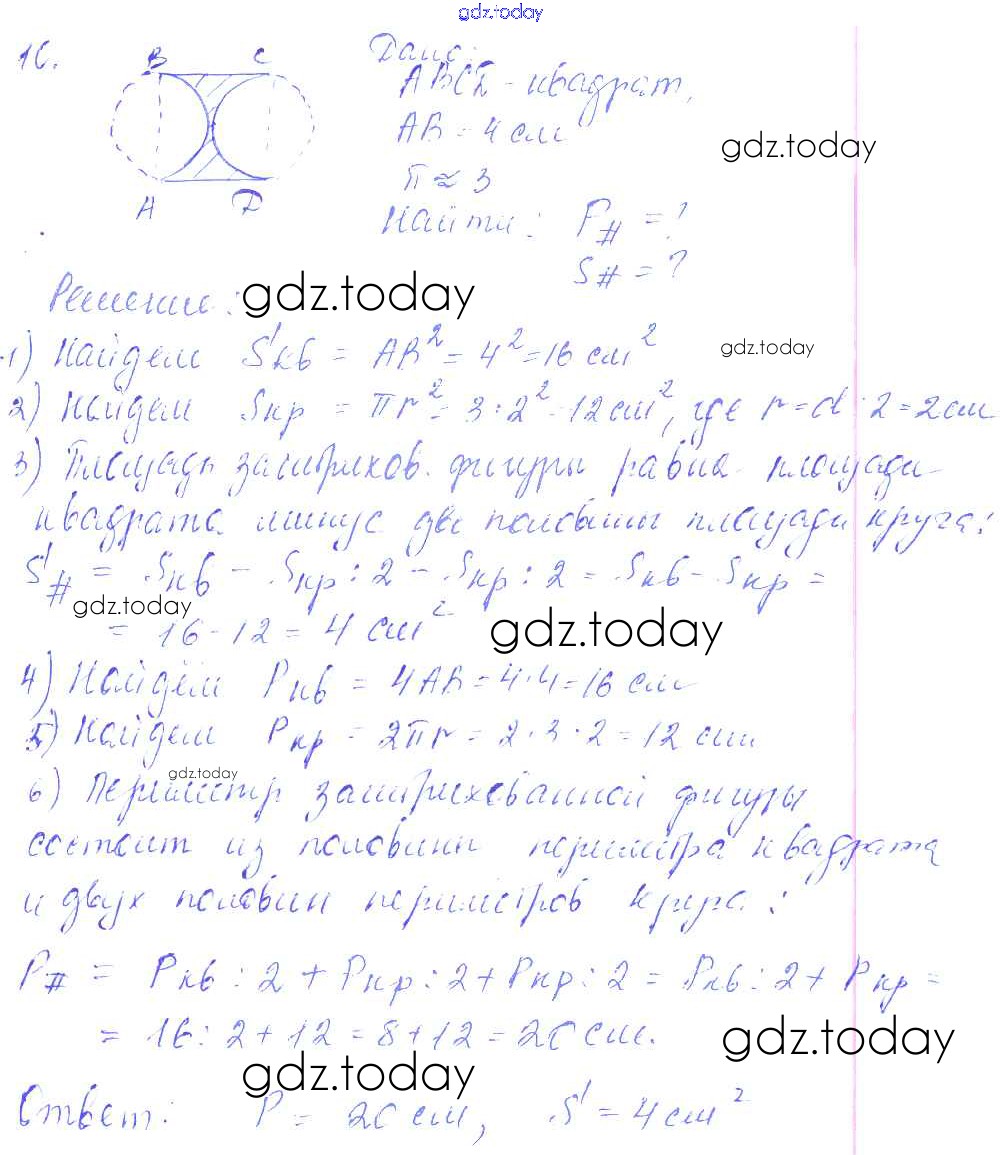 gdz.today
16.
B C
A D
Дано:
ABCD - квадрат,
AB = 4 см
π ≈ 3
gdz.today
Найти: P# = ?
S# = ?
Решение: gdz.today
1) Найдем Sкв = AB² = 4² = 16 см²
gdz.today
2) Найдем Sкр = πr² = 3 · 2² = 12 см², где r = d : 2 = 2 см
3) Площадь заштрихов. фигуры равна площади
квадрата минус две половины площади круга:
S# = Sкв - Sкр : 2 - Sкр : 2 = Sкв - Sкр =
gdz.today
= 16 - 12 = 4 см²
gdz.today
4) Найдём Pкв = 4AB = 4 · 4 = 16 см
5) Найдем Pкр = 2πr = 2 · 3 · 2 = 12 см.
gdz.today
6) Периметр заштрихованной фигуры
состоит из половины периметра квадрата
и двух половин периметров круга:
P# = Pкв : 2 + Pкр : 2 + Pкр : 2 = Pкв : 2 + Pкр =
= 16 : 2 + 12 = 8 + 12 = 20 см.
gdz.today
gdz.today
Ответ: P = 20 см, S = 4 см²